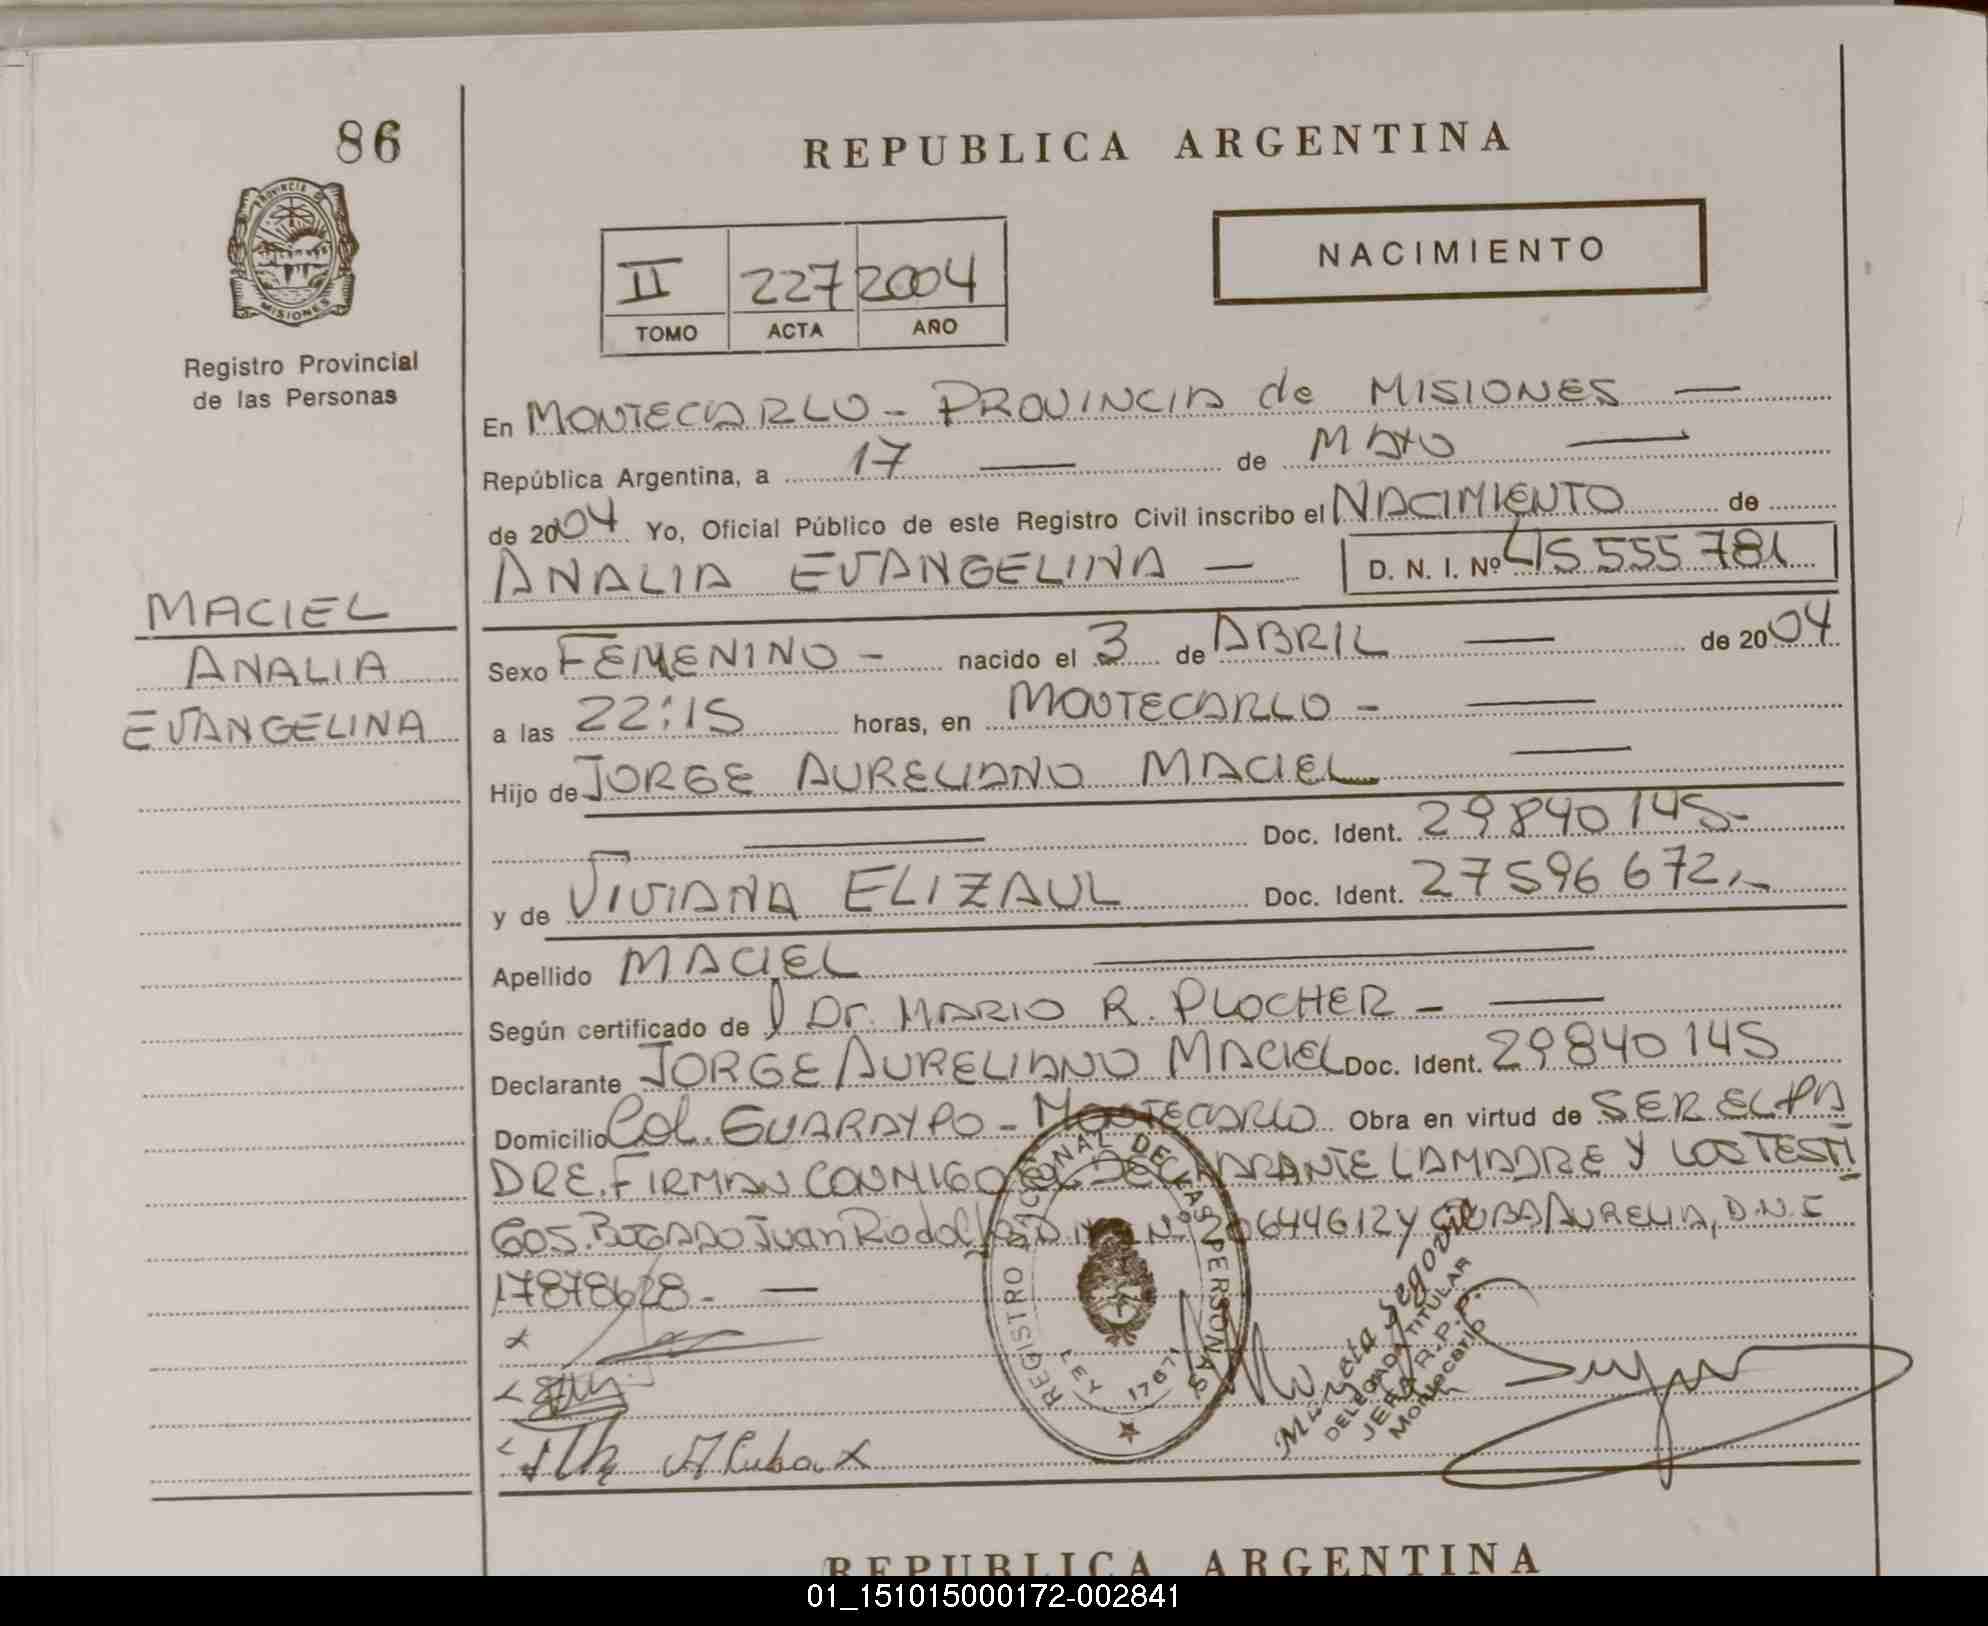 86
REPUBLICA ARGENTINA
PROVINCIA DE
MISIONES
Registro Provincial
de las Personas
II 227 2004
TOMO ACTA AÑO
NACIMIENTO
En MONTECARLO - PROVINCIA de MISIONES
República Argentina, a 17 de MAYO
de 2004 Yo, Oficial Público de este Registro Civil inscribo el NACIMIENTO de
ANALIA EVANGELINA - D. N. I. Nº 45 555 781
MACIEL
ANALIA
EVANGELINA
Sexo FEMENINO - nacido el 3 de ABRIL de 2004
a las 22:15 horas, en MONTECARLO -
Hijo de JORGE AURELIANO MACIEL
Doc. Ident. 29840145-
y de VIVIANA ELIZAUL Doc. Ident. 27596672.-
Apellido MACIEL
Según certificado de l Dr. MARIO R. PLOCHER -
Declarante JORGE AURELIANO MACIEL Doc. Ident. 29840145
Domicilio Col. GUARAYPO - MONTECARLO Obra en virtud de SER EL PA
DRE. FIRMAN CONMIGO EL DECLARANTE LA MADRE Y LOS TESTI
GOS. BOGADO Juan Rodolfo D.N.I. Nº 20644612 Y CUBA AURELIA, D.N.I
17878628. -
REGISTRO NACIONAL DE LAS PERSONAS
LEY 17671
A Cuba x
Segovia
DELEGADA TITULAR
JEFA R.P.P.
Montecarlo
REPUBLICA ARGENTINA
01_151015000172-002841